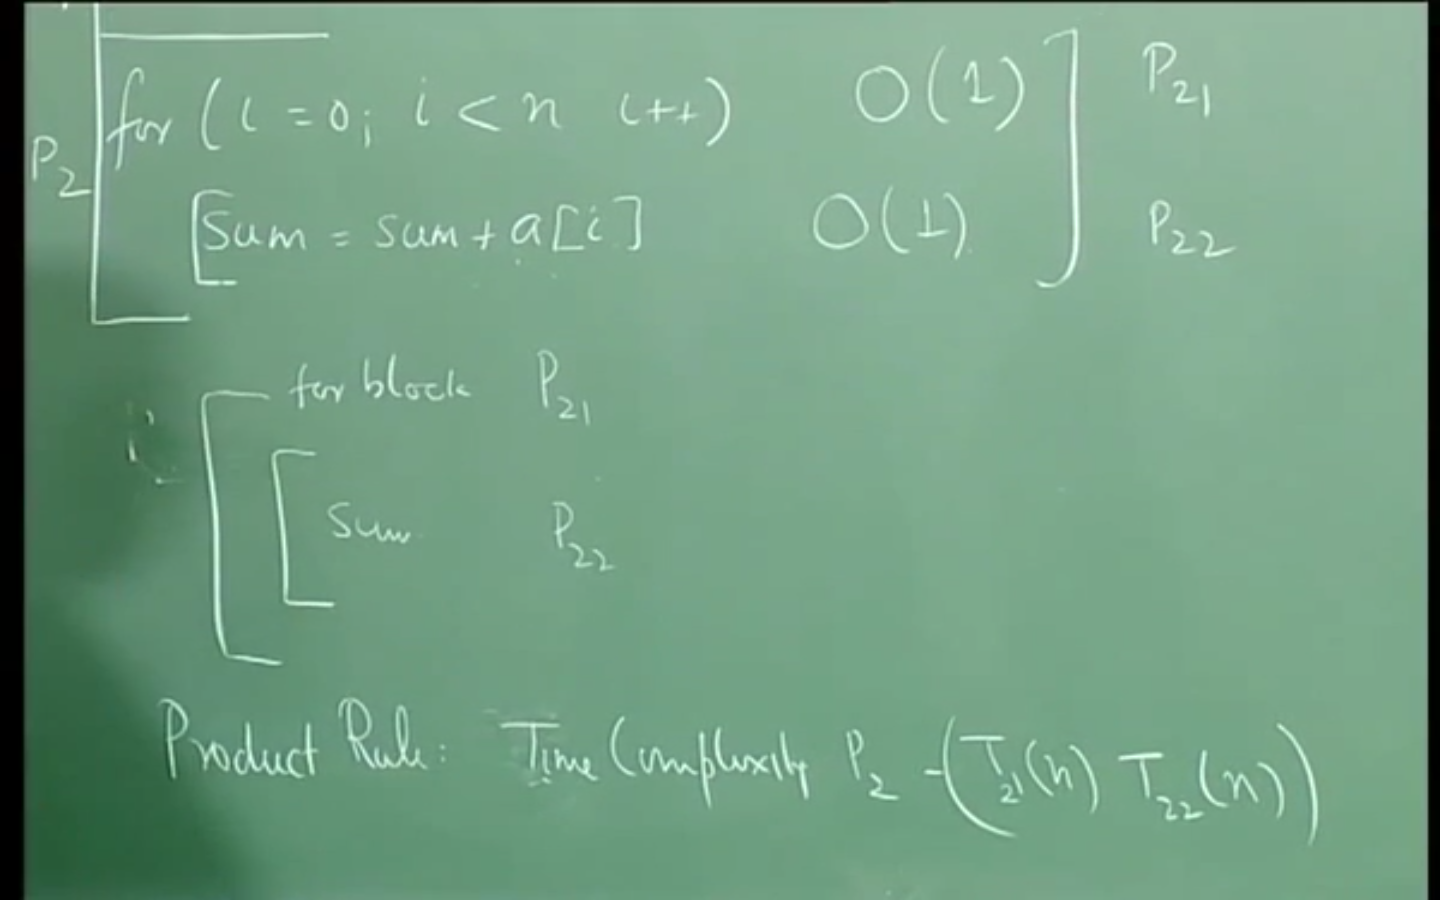 for (i = 0; i < n i++) O(1) P21
P2
[sum = sum + a[i] O(1) P22
for block P21
sum P22
Product Rule: Time Complexity P2 - (T21(n) T22(n))